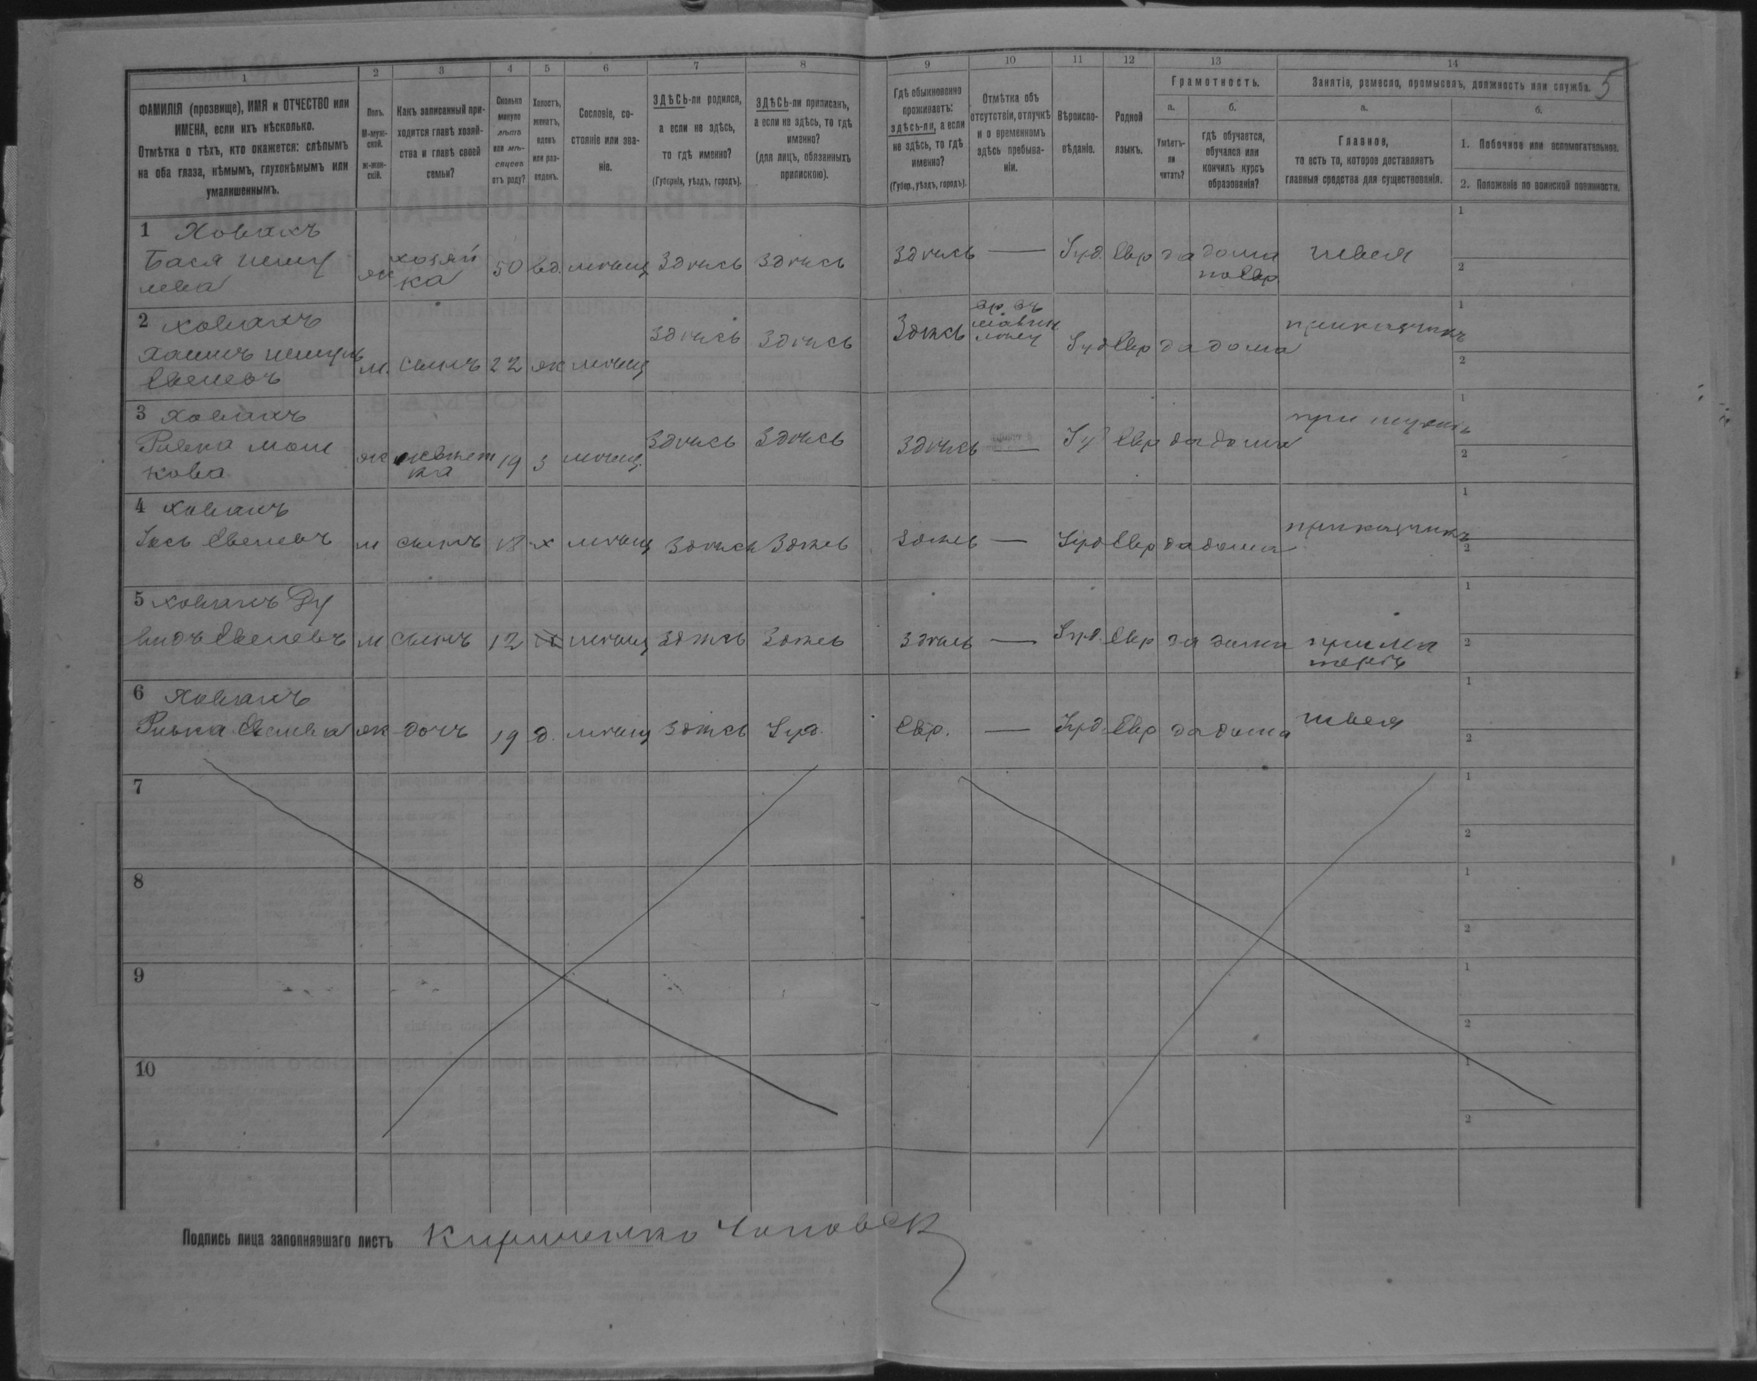 1 2 3 4 5 6 7 8 9 10 11 12 13 14
5
ФАМИЛІЯ (прозвище), ИМЯ и ОТЧЕСТВО или
ИМЕНА, если ихъ нѣсколько.
Отмѣтка о тѣхъ, кто окажется: слѣпымъ
на оба глаза, нѣмымъ, глухонѣмымъ или
умалишеннымъ.
Полъ.
М-муж-
ской.
ж-жен-
скій.
Какъ записанный при-
ходится главѣ хозяй-
ства и главѣ своей
семьи?
Сколько
минуло
лѣтъ
или мѣ-
сяцевъ
отъ роду?
Холостъ,
женатъ,
вдовъ
или раз-
веденъ.
Сословіе, со-
стояніе или зва-
ніе.
ЗДѢСЬ-ли родился,
а если не здѣсь,
то гдѣ именно?
(Губернія, уѣздъ, городъ).
ЗДѢСЬ-ли приписанъ,
а если не здѣсь, то гдѣ
именно?
(для лицъ, обязанныхъ
припискою).
Гдѣ обыкновенно
проживаетъ:
здѣсь-ли, а если
не здѣсь, то гдѣ
именно?
(Губер., уѣздъ, городъ).
Отмѣтка объ
отсутствіи, отлучкѣ
и о временномъ
здѣсь пребыва-
ніи.
Вѣроиспо-
вѣданіе.
Родной
языкъ.
Грамотность.
а.
Умѣетъ-
ли
читать?
б.
гдѣ обучается,
обучался или
кончилъ курсъ
образованія?
Занятія, ремесло, промыселъ, должность или служба.
а.
Главное,
то есть то, которое доставляетъ
главныя средства для существованія.
б.
1. Побочное или вспомогательное.
2. Положеніе по воинской повинности.
1 Ховахъ
Бася
ж хозяй
ка 50 вд. мѣщ Здѣсь Здѣсь Здѣсь — Іуд. Евр да дома
по Евр. швея
1
2
2 Ховахъ
м. сынъ 22 ж мѣщ Здѣсь Здѣсь Здѣсь Іуд Евр да дома прикащикъ
1
2
3 Ховахъ
Ривка Мош
кова
ж невѣст
ка 19 з мѣщ. Здѣсь Здѣсь Здѣсь — Іуд Евр да дома при мужѣ
1
2
4 Ховахъ
м сынъ 18 х мѣщ Здѣсь Здѣсь Здѣсь — Іуд Евр да дома прикащикъ
1
2
5 Ховахъ Ду
видъ
м сынъ 12 х мѣщ Здѣсь Здѣсь Здѣсь — Іуд. Евр да дома при ма
тери
1
2
6 Ховахъ
Ривка
ж дочь 19 д. мѣщ Здѣсь Іуд. Евр. — Іуд. Евр да дома швея
1
2
7
1
2
8
1
2
9
1
2
10
1
2
Подпись лица заполнявшаго листъ